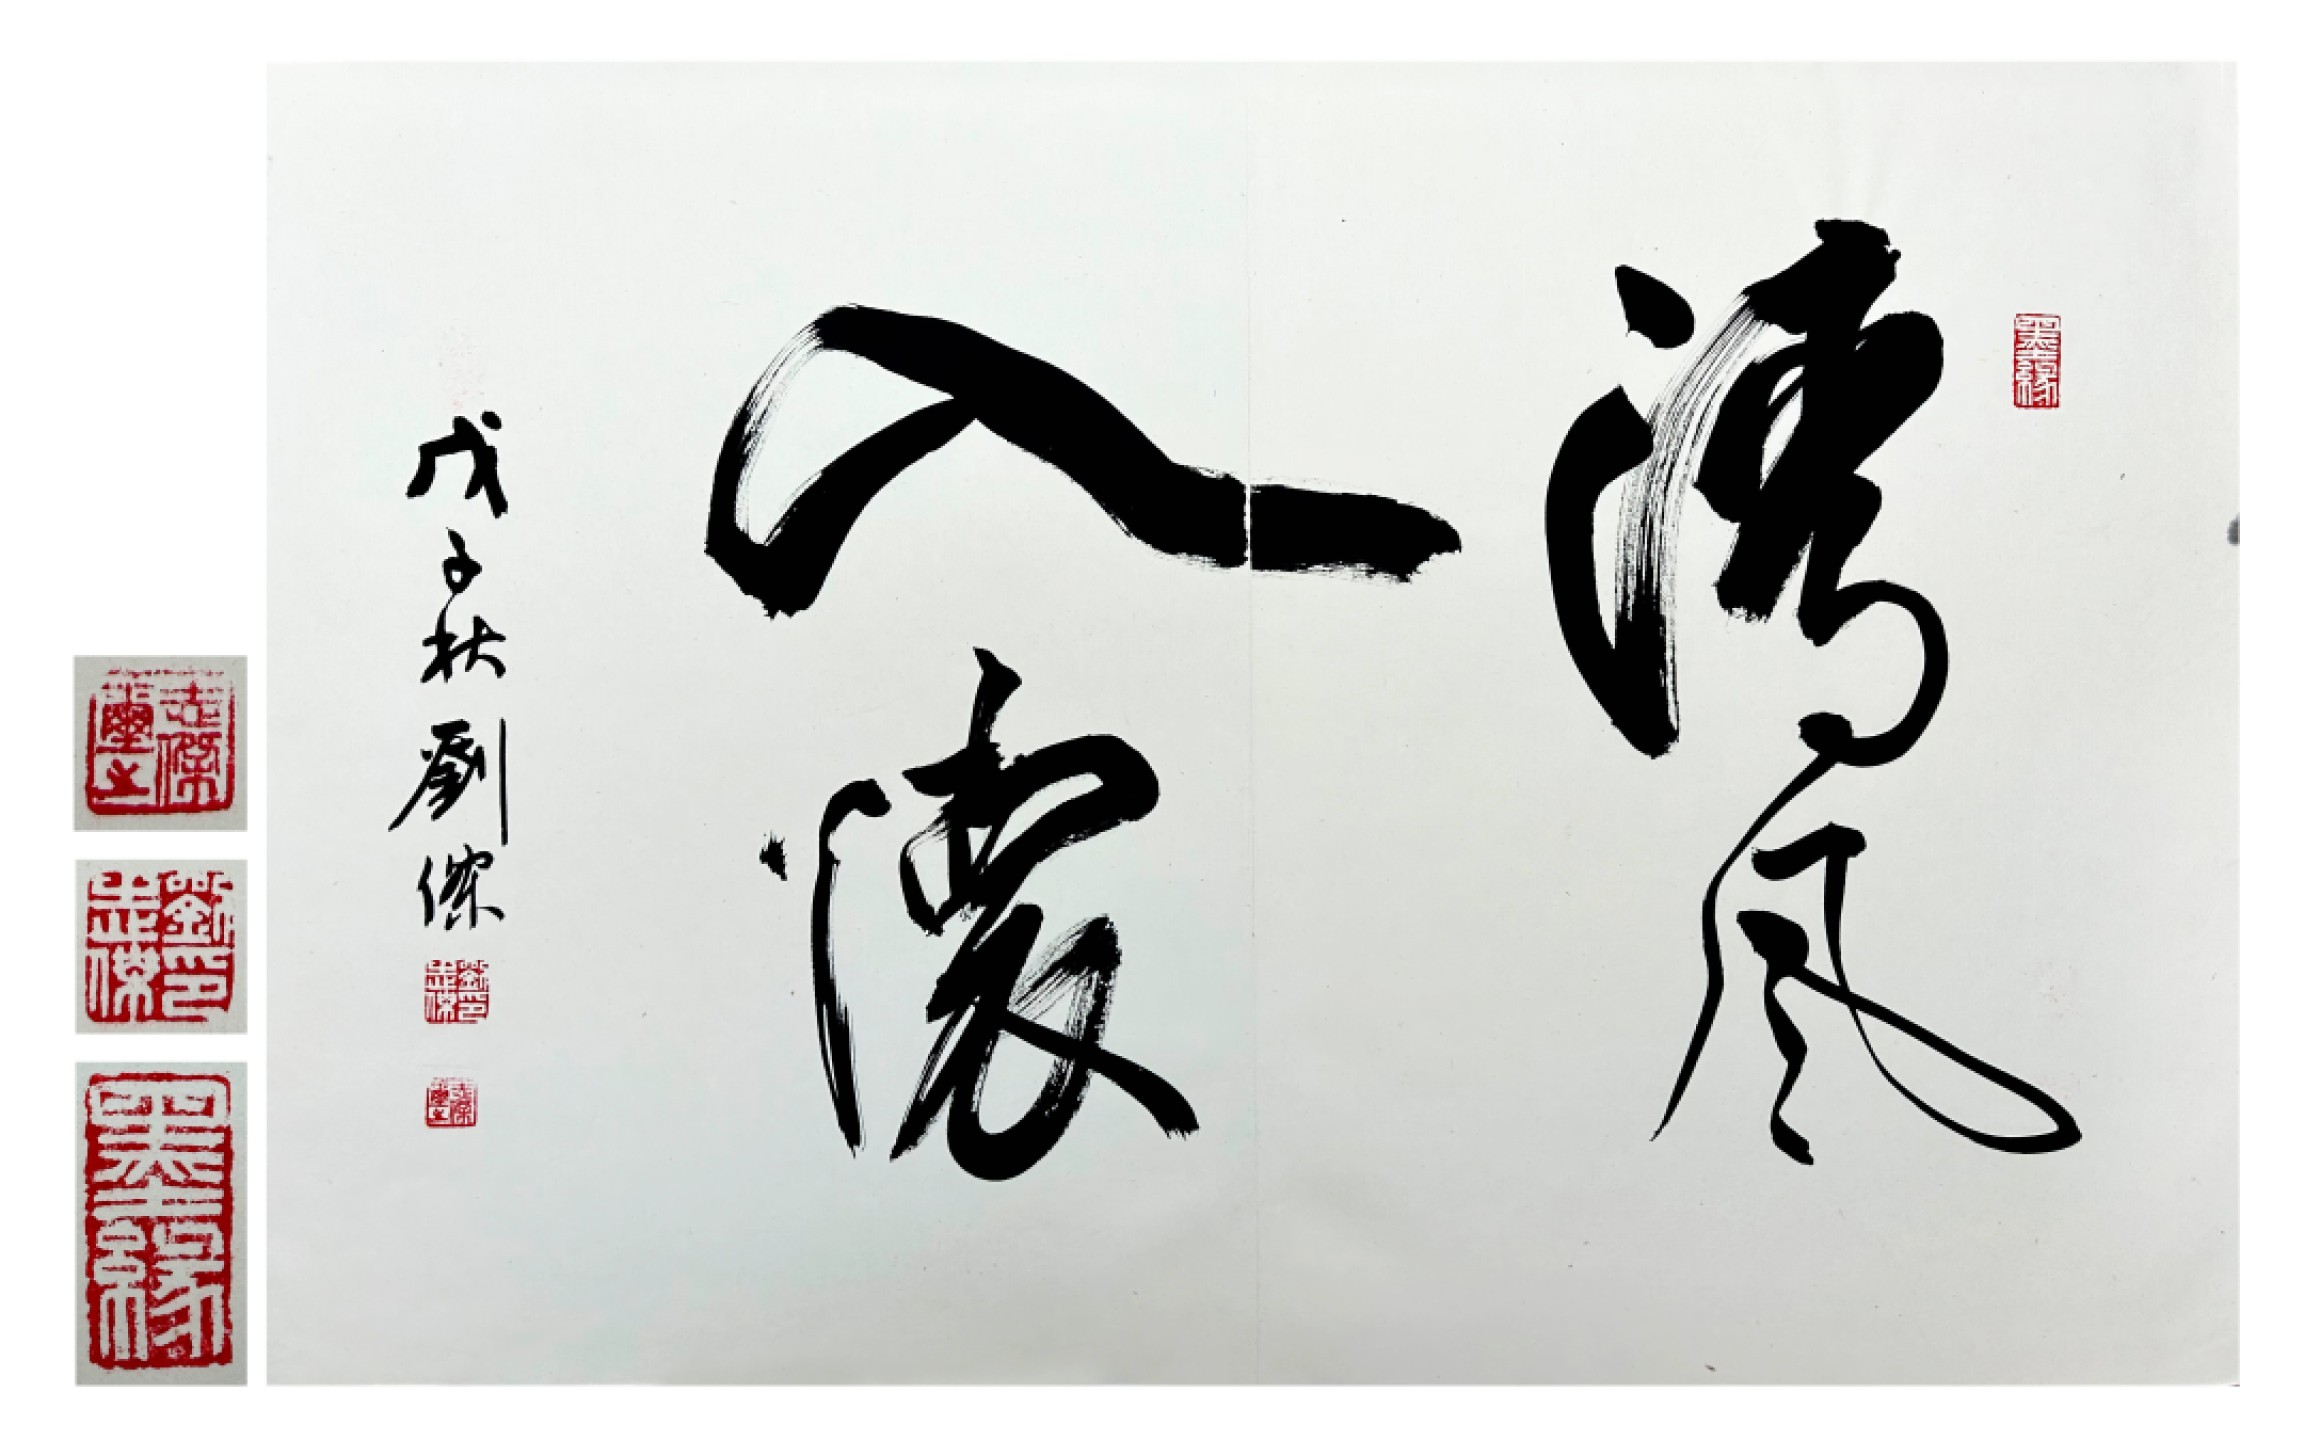 墨緣
清风
入懷
戊子秋劉傑
劉印志傑
志傑
志傑
劉印志傑
墨緣